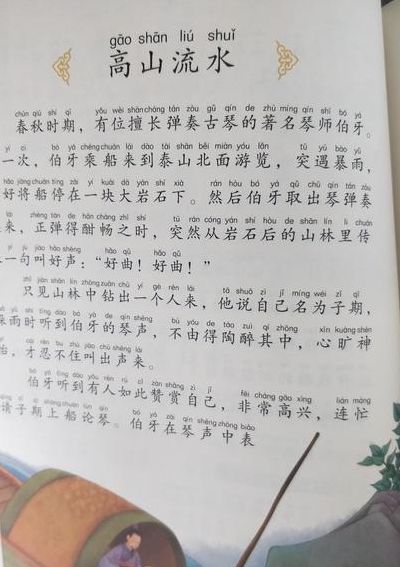 gāo shān liú shuǐ
高山流水
chūn qiū shí qī yǒu wèi shàn cháng tán zòu gǔ qín de zhù míng qín shī bó yá
春秋时期，有位擅长弹奏古琴的著名琴师伯牙。
yí cì bó yá chéng chuán lái dào tài shān běi miàn yóu lǎn tū yù bào yǔ
一次，伯牙乘船来到泰山北面游览，突遇暴雨，
hǎo jiāng chuán tíng zài yí kuài dà yán shí xià rán hòu bó yá qǔ chū qín tán zòu
好将船停在一块大岩石下。然后伯牙取出琴弹奏
lái zhèng tán de hān chàng zhī shí tū rán cóng yán shí hòu de shān lín lǐ chuán
来，正弹得酣畅之时，突然从岩石后的山林里传
yí jù jiào hǎo shēng hǎo qǔ hǎo qǔ
一句叫好声：“好曲！好曲！”
zhǐ jiàn shān lín zhōng zuān chū yí gè rén lái tā shuō zì jǐ míng wéi zǐ qī
只见山林中钻出一个人来，他说自己名为子期，
yǔ shí tīng dào bó yá de qín shēng bù yóu de táo zuì qí zhōng xīn kuàng shén
雨时听到伯牙的琴声，不由得陶醉其中，心旷神
cái rěn bú zhù jiào chū shēng lái
怡，才忍不住叫出声来。
bó yá tīng dào yǒu rén rú cǐ zàn shǎng zì jǐ fēi cháng gāo xìng lián máng
伯牙听到有人如此赞赏自己，非常高兴，连忙
qǐng zǐ qī shàng chuán lùn qín bó yá zài qín shēng zhōng biǎo
请子期上船论琴。伯牙在琴声中表